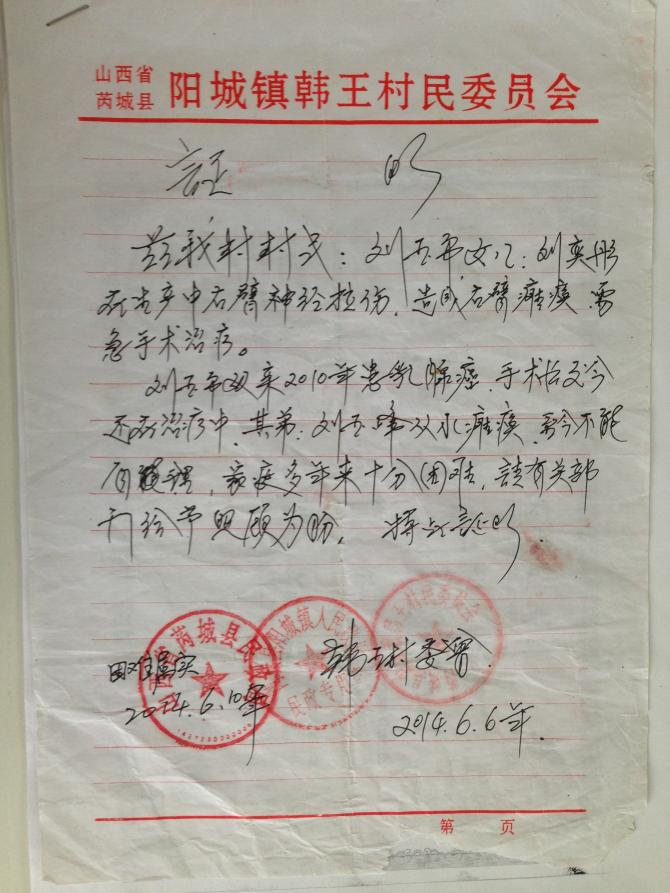 山西省
芮城县
阳城镇韩王村民委员会
证 明
兹我村村民：刘五 女儿：刘奕彤
在生产中右臂神经拉伤，造成右臂瘫痪，需
急手术治疗。
刘五 双亲2010年患乳腺癌，手术后至今
还在治疗中，其弟：刘五 从小瘫痪，至今不能
自理，家庭多年来十分困难，请有关部
门给予照顾为盼。 特此证明
困难属实
2014.6.10
韩王村委会
2014.6.6年.
芮城县民政
阳城镇人民
民政专用
王村民委员会
第 页